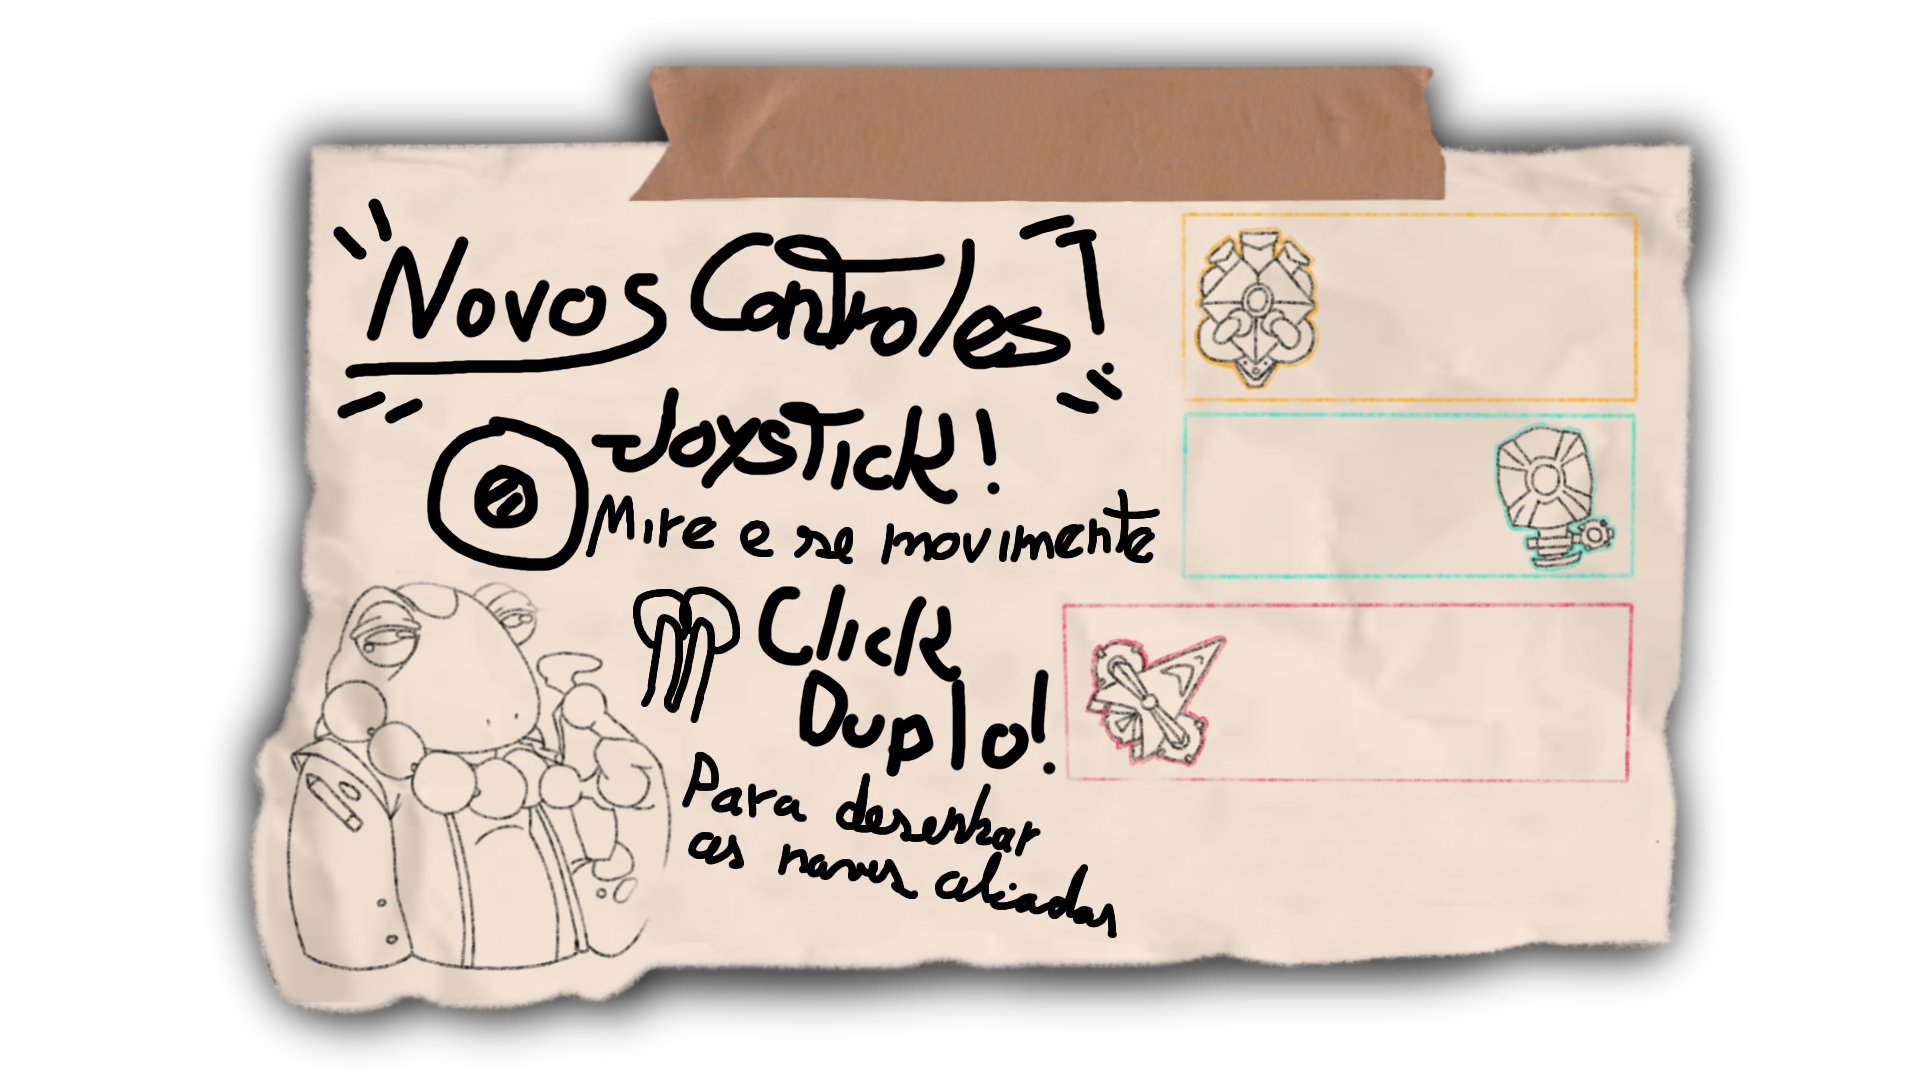 Novos Controles!
Joystick!
Mire e se movimente
Click
Duplo!
Para desenhar
as naves aliadas